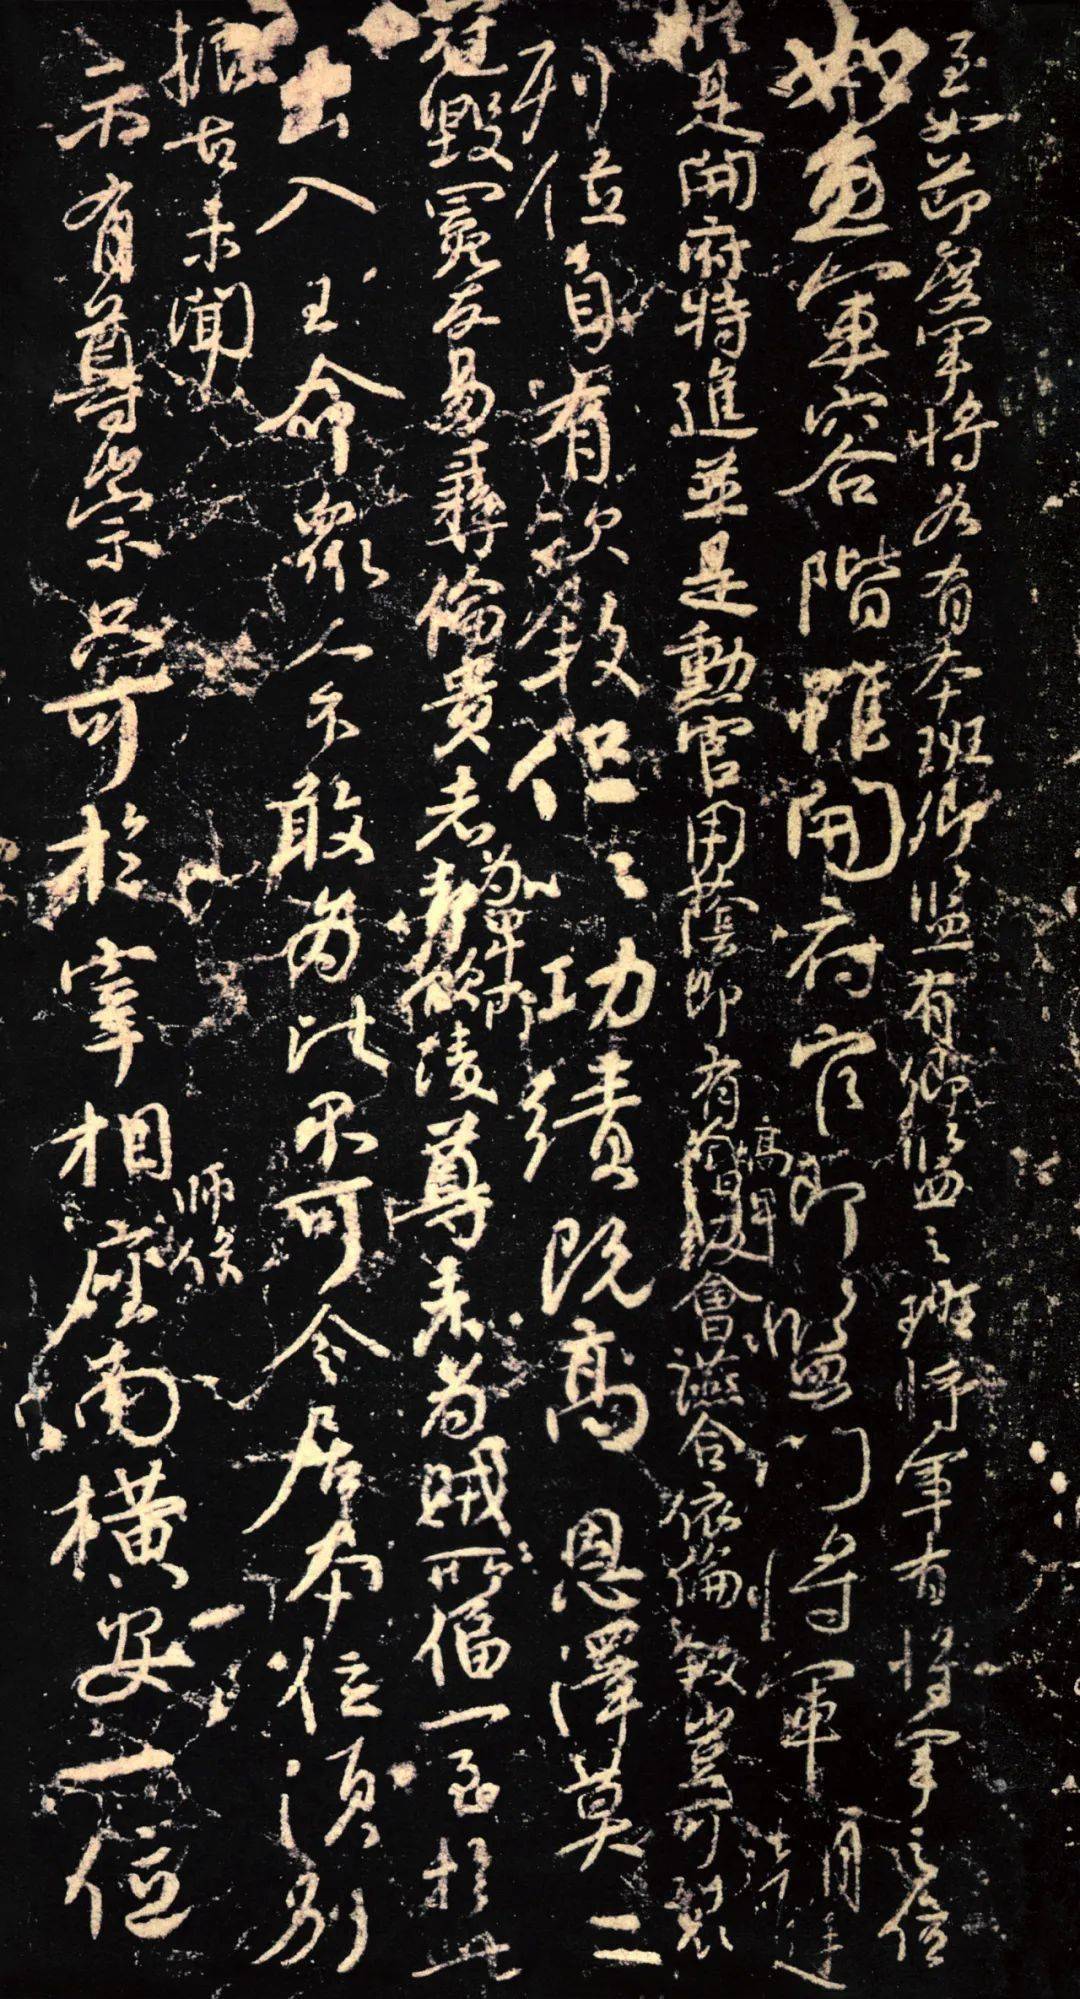 至如節度軍將各有本班卿監有卿監之班將軍有將軍之位
如魚軍容階雖開府官即監門將軍朝廷
縱是開府特進並是勳官用蔭即有高卑會讌合依倫敘豈可裂
列位自有次敘但以功績既高恩澤莫二
冠毀冕反易彝倫貴者為卑所凌尊者為賊所逼一至於此
出入王命眾人不敢為此不可令居本位須別
振古未聞
示有尊崇只可於宰相師保座南橫安一位